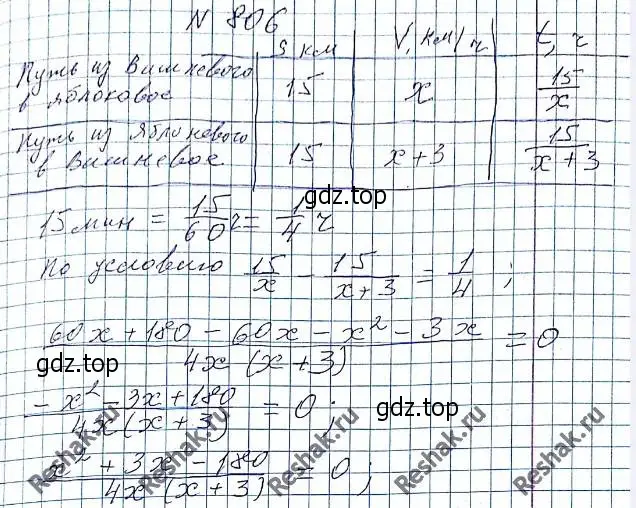 N 806
S км V, км/ч t, ч
Путь из Вишневого в Яблоковое 15 x 15/x
Путь из Яблоневого в Вишневое 15 x+3 15/(x+3)
15 мин = 15/60 ч = 1/4 ч
gdz.top
По условию 15/x - 15/(x+3) = 1/4 ;
(60x + 180 - 60x - x² - 3x)/(4x (x+3)) = 0
gdz.top
(-x² - 3x + 180)/(4x(x+3)) = 0;
gdz.top
(x² + 3x - 180)/(4x (x+3)) = 0;
Reshak.ru
Reshak.ru
Reshak.ru
Reshak.ru